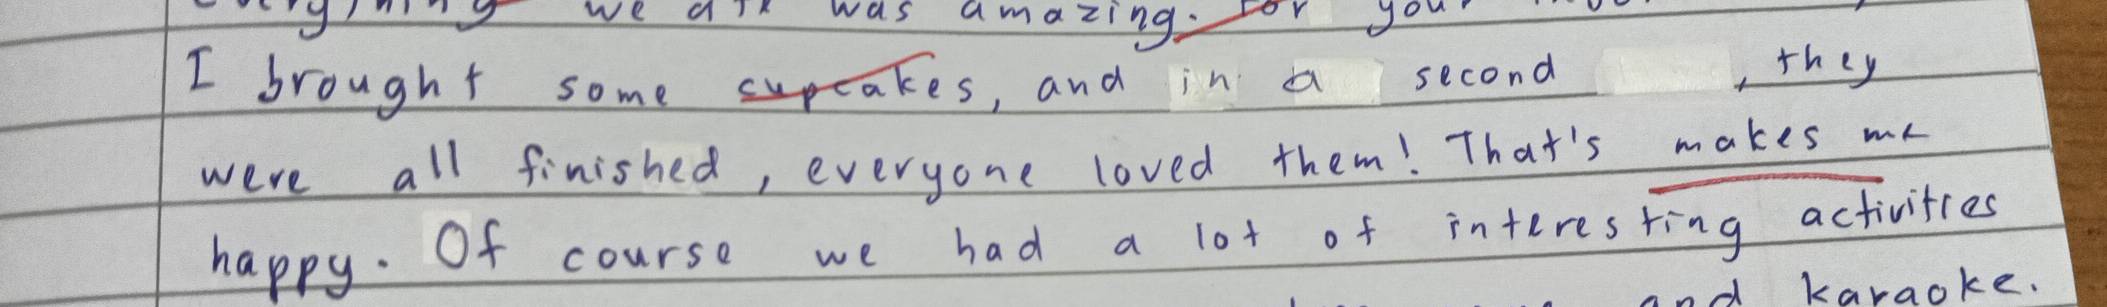 we ate was amazing. For your
I brought some cupcakes, and in a second , they
were all finished, everyone loved them! That's makes me
happy. Of course we had a lot of interesting activities
and karaoke.